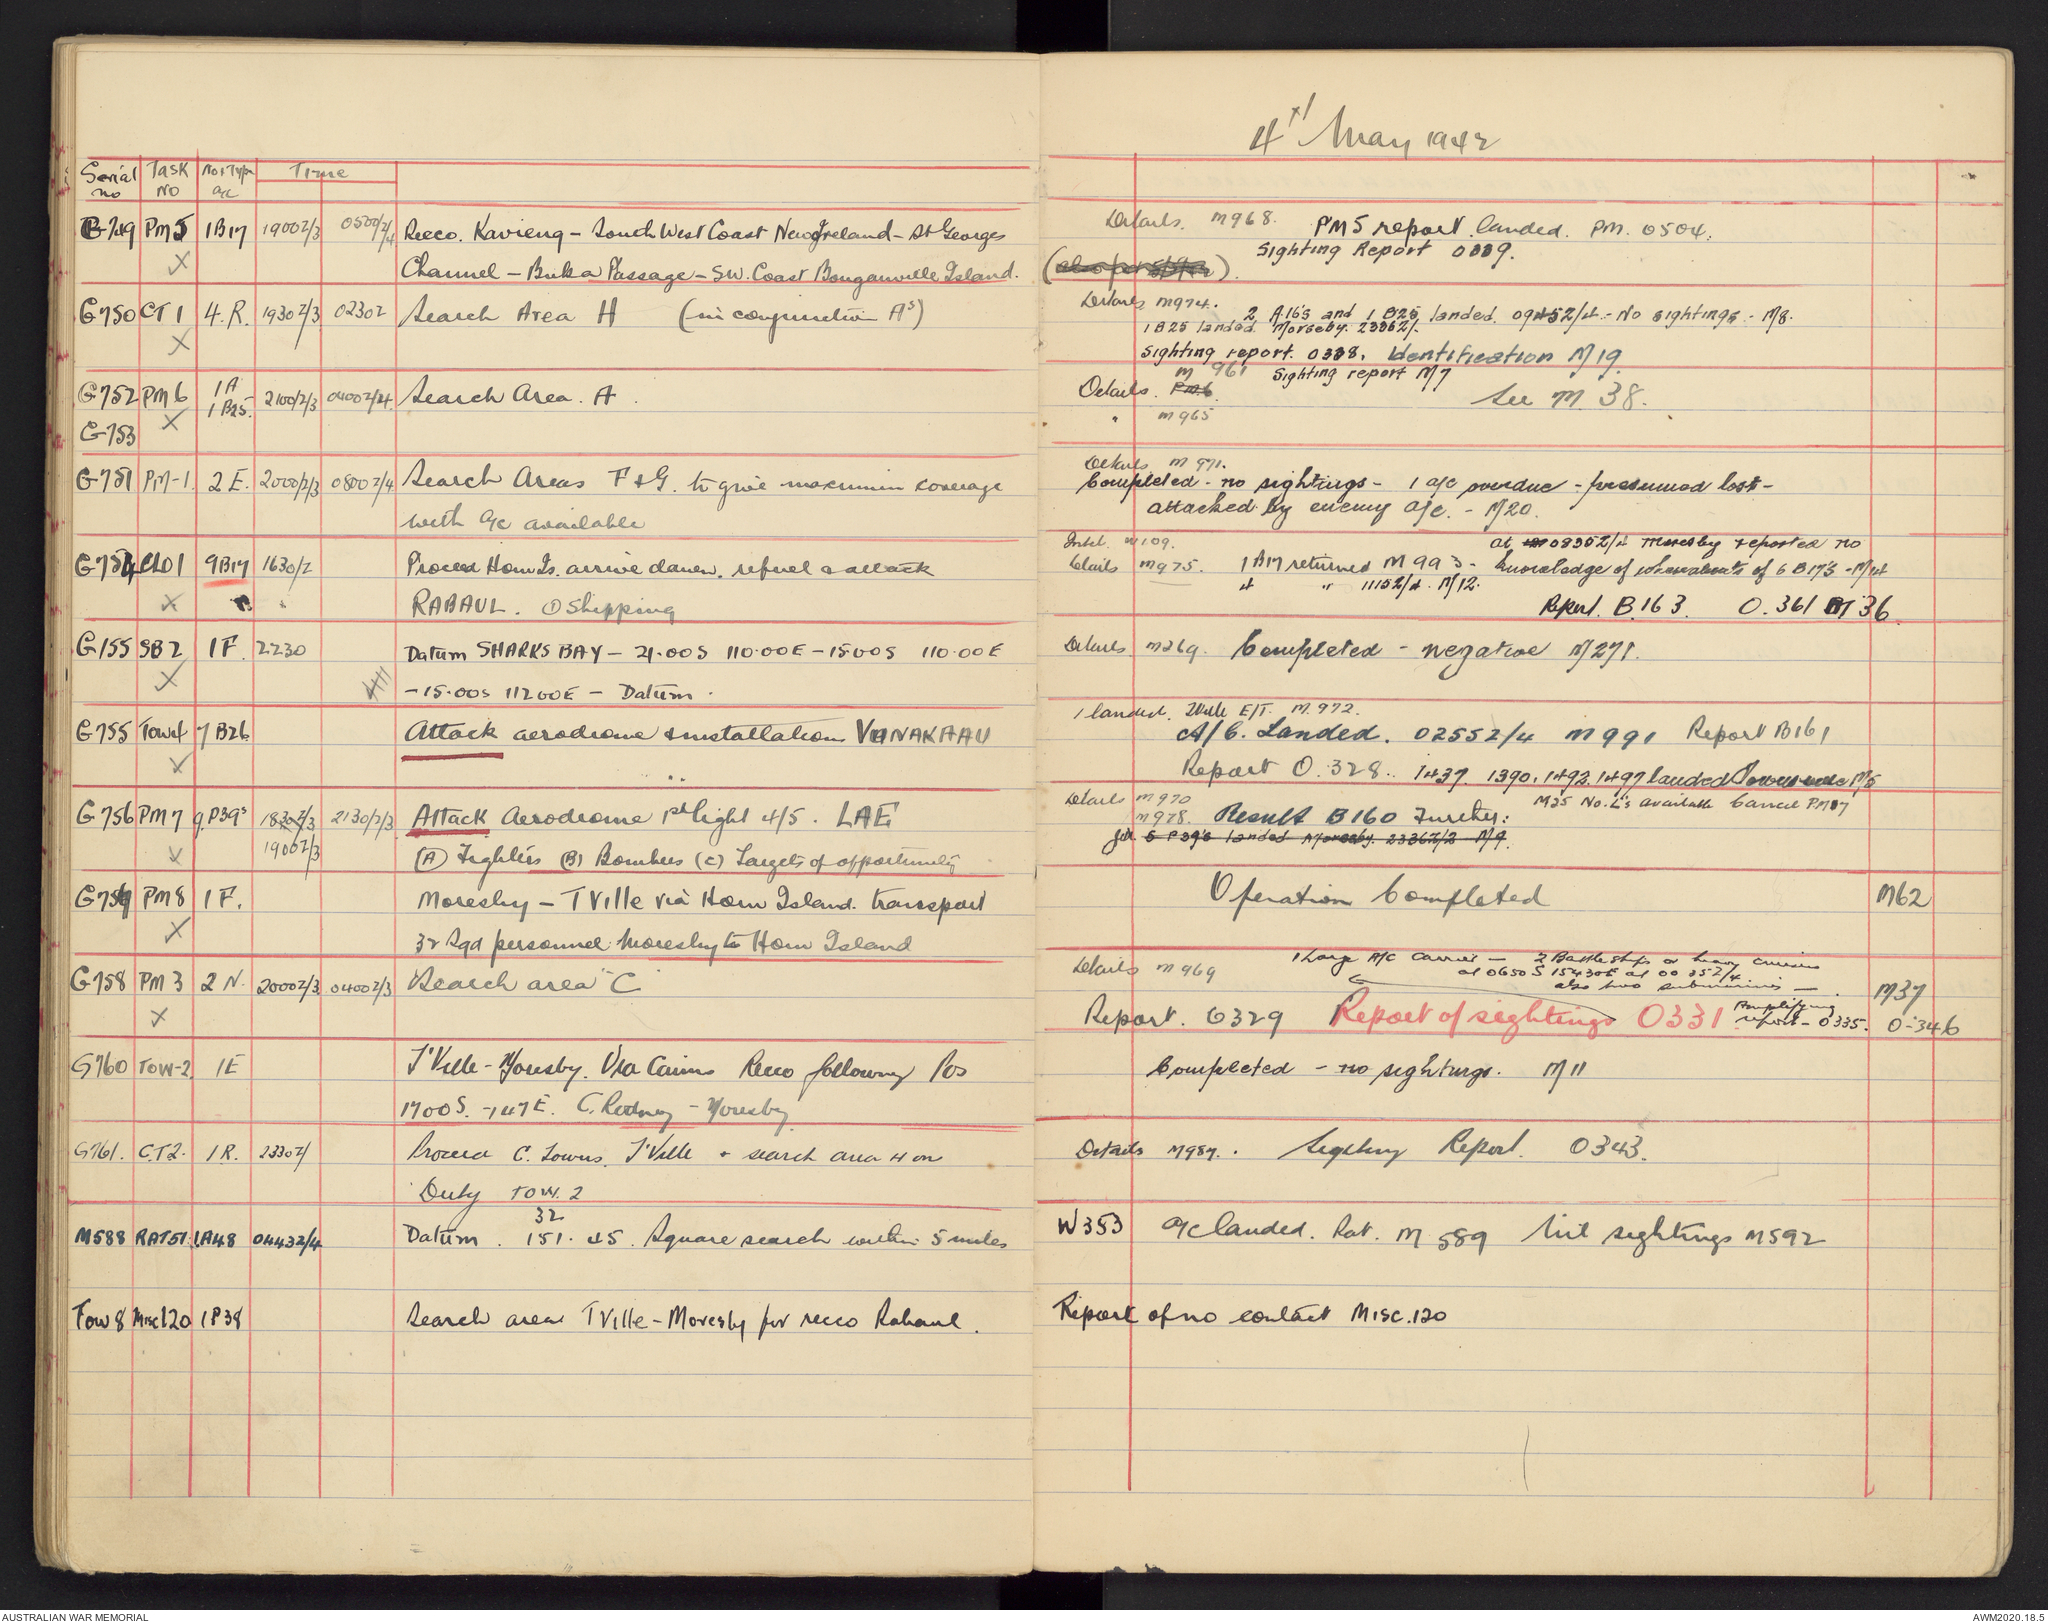 4th May 1942
Serial no Task No No & Type a/c Time
G749 PM5 1B17 1900Z/3 0500Z/4 Recco. Kavieng - South West Coast New Ireland - St Georges
Channel - Buka Passage - SW. Coast Bougainville Island.
G750 CT1 4.R. 1930Z/3 0230Z Search Area H (in conjunction As)
G752 PM6 1A 2100Z/3 0400Z/4 Search Area. A.
1B25.
G753
G751 PM-1. 2E. 2000Z/3 0800Z/4 Search Areas F & G. to give maximum coverage
with a/c available
G754 CLO1 9B17 1630/Z Proceed Horn Is. arrive dawn, refuel & attack
RABAUL. ① Shipping
G155 SB2 1F. 2230 Datum SHARKS BAY - 21.00S 110.00E - 15.00S 110.00E
- 15.00S 112.00E - Datum.
G755 Tow4 7B26 Attack aerodrome & installations VUNAKAAU
G756 PM7 9.P39s 1830Z/3 2130/Z/3 Attack Aerodrome 1st light 4/5. LAE
1900Z/3 (A) Fighters (B) Bombers (C) Targets of opportunity
G757 PM8 1F. Moresby - TVille via Horn Island. transport
32 Sqd personnel Moresby to Horn Island
G758 PM3 2N. 2000Z/3 0400Z/3 Search area "C"
G760 TOW-2 1E T'Ville - Moresby. Via Cairns Recco following Pos
1700S. - 147E. C. Rodney - Moresby
G761. CT2. 1R. 2330Z/ Proceed C. Towns. T'Ville & search area H on
Duty TOW.2
32
M588 RAT51 1A48 0443Z/4 Datum. 151.45. Square search within 5 miles
Tow8 Misc120 1P38 Search area TVille - Moresby for recco Rabaul.
Details. M968. PM5 report landed. PM. 0504.
Sighting Report 0339.
Details M974. 2 A16's and 1 B25 landed. 0945Z/4 - No sightings - M8.
1 B25 landed. Moresby. 2336Z/.
Sighting report. 0338. Identification M19
M 961 Sighting report M7
Details. PM6 See M. 38.
" M965
Details M971.
Completed - no sightings - 1 a/c overdue - presumed lost -
attacked by enemy a/c. - M20.
Intel. W109. at 0835Z/4 Moresby reported no
Details M975. 1 B17 returned M993 - knowledge of whereabouts of 6 B17's - M14
4 " 1115Z/4. M12.
Report. B.163. O.361 M36
Details. M269. Completed - negative M271.
1 landed. TVille E/T. M.972.
A/C. Landed. 0255Z/4 M991 Report B161
Report O.328. 1437. 1390, 1492, 1497 landed Townsville M5
Details M970 M35 No. L's available Cancel PM7
M978. Result B160 Further:
5 P39's landed Moresby. 2336Z/2 M9.
Operation Completed M62
Details M969 1 Large A/C Carrier - 2 Battleships or heavy cruisers
at 0650S 15430E at 0035Z/4
also two submarines - M37
Report. O329 Report of sightings O331 Amplifying
report - O335. O-346
Completed - no sightings. M11
Details M987.. Sighting Report. O343.
W353 a/c landed. Rat. M 589 Nil sightings M592
Report of no contact Misc.120
AUSTRALIAN WAR MEMORIAL
AWM2020.18.5